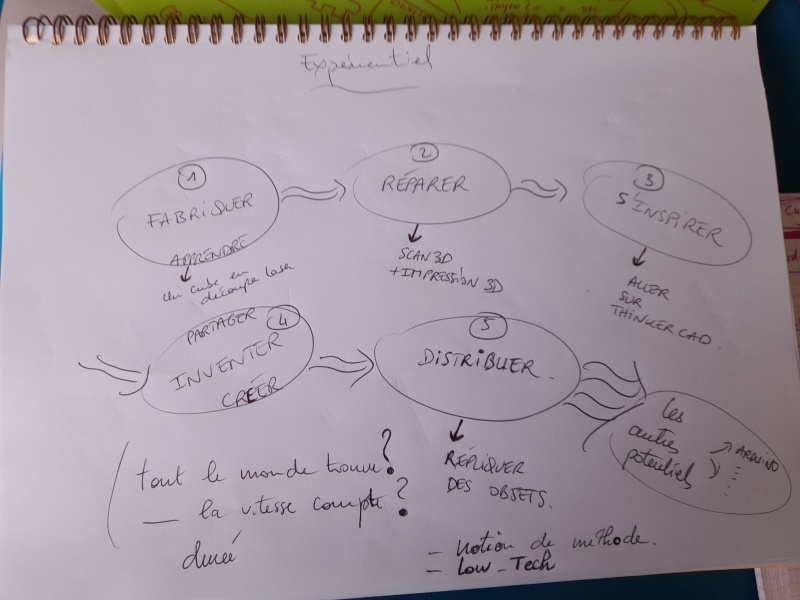 Expérientiel
1
FABRIQUER
APPRENDRE
Un cube en
découpe laser
2
RÉPARER
SCAN 3D
+ IMPRESSION 3D
3
S'INSPIRER
ALLER
SUR
THINKERCAD.
PARTAGER
4
INVENTER
CRÉER
5
DISTRIBUER.
RÉPLIQUER
DES OBJETS.
Les
autres
potentiels
ARDUINO
tout le monde trouve?
— la vitesse compte?
durée
- Notion de méthode.
- Low-Tech